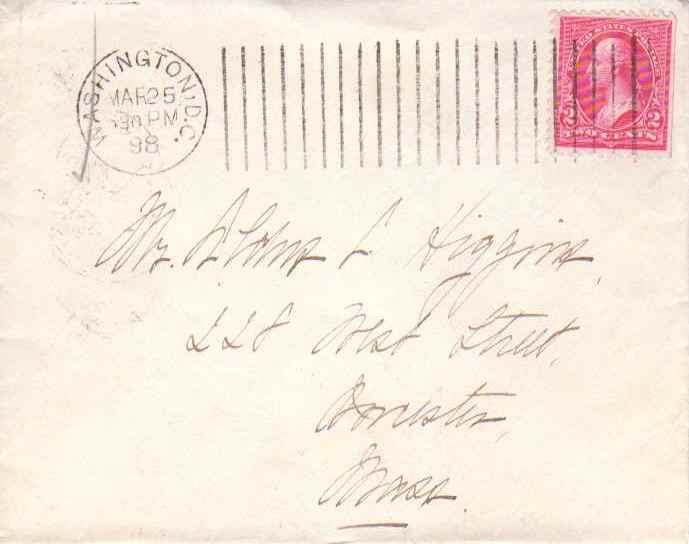 WASHINGTON, D.C.
MAR 25
30 PM
98
UNITED STATES POSTAGE
2 2
TWO CENTS
Mr. Higgins,
228 West Street,
Worcester,
Mass.